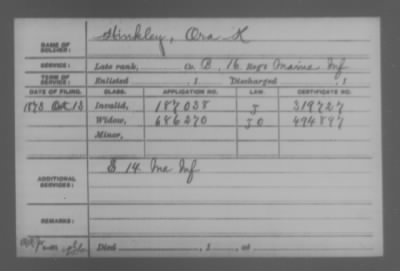 NAME OF SOLDIER: Hinkley, Ora K
SERVICE: Late rank, Co B, 16 Reg't Maine Inf
TERM OF SERVICE: Enlisted , 1 Discharged , 1
DATE OF FILING. CLASS. APPLICATION NO. LAW. CERTIFICATE NO.
1873 Oct 13 Invalid, 187038 J 319727
Widow, 686270 J O 494897
Minor,
ADDITIONAL SERVICES: E 14 Ma Inf
REMARKS:
Died , 1 , at